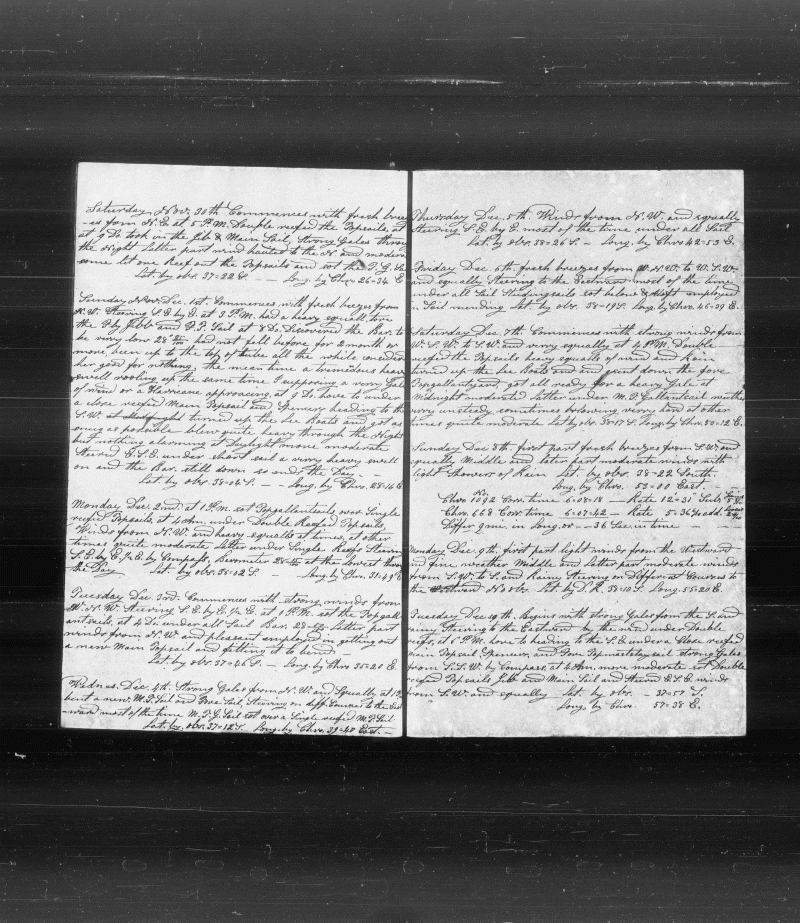 Saturday Nov. 30th Commences with fresh bree
-es from N.E. at 5 P.M. Double reefed the Topsails, at
at 9 Do. took in the Jib & Main Sail, Strong Gales throu
the Night latter part wind hauled to the N. and modera
some let one Reef out the Topsails and set the T.G. Sa
Lat. by obs. 37=22 S. — Long. by Chro 26=34 E
Sunday Dec. 1st. Commences with fresh breezes from
N.W. Steering S.E. by E. at 3 P.M. had a heavy squall, tore
the Fly Jibb and F.T. Sail at 8 Do. Discovered the Bar. to
be very low 28 had not fell before for 2 month or
more, been up to the top of tube all the while consider
her good for nothing, the mean time a tremedious heavy
swell rooling up the same time I supposing a very Gale
of wind or a Harricane approacing, at 9 Do. hove to under
a close reefed Main Topsail and Spencer heading to the
S.W. at Midnight turned up the Lee Boats and got as
snug as possible blew quite heavy through the Night
but nothing alarming at Daylight more moderate
Steered E.S.E. under short sail a very heavy swell
on and the Bar. still down so ends the Day —
Lat. by obs. 38=06 S. — Long. by Chro. 28=16 E
Monday Dec. 2nd. at 1 P.M. set Topgallantsails over Single
reefed Topsails, at 4 Am. under Double Reefed Topsails,
Winds from N.W. and heavy squalls at times, at other
times quite moderate latter under Single Reefs Steering
S.E. by E. ½ E. by Compass, Bormeter 28 at the lowest throu
the Day Lat. by obs. 38=02 S. — Long. by Chro. 31=49 E
Tuesday Dec. 3rd. Commences with strong winds from
W.N.W. Steering S.E. by E. ½ E. at 1 P.M. set the Topgall
antsails, at 4 Do. under all Sail Bar. 28 latter part
winds from N.W. and pleasant employed in getting out
a new Main Topsail and fitting it to bend —
Lat. by obs. 37=46 S. — Long. by Chro 35=20 E.
Wednes. Dec. 4th. Strong Gales from N.W. and Squally at
bent a new M.T. Sail and Fore Sail Steering on diff. Courses to the East
-ward most of the time M.T.G. Sail set over a Single reefed M.T. Sail
Lat. by obs. 37=12 S. Long. by Chro. 39=40 East. —
Thursday Dec. 5th. Winds from N.W. and squally
Steering S.E. by E. most of the time under all Sail
Lat. by obs. 38=26 S. — Long. by Chro 42=53 E.
Friday Dec. 6th. fresh breezes from W.N.W. to W.S.W.
and squally Steering to the Eastward most of the time
under all Sail Studingsails set below & aloft employed
in Sail mending Lat. by obs. 38=19 S. Long. by Chro. 46=39 E.
Saturday Dec. 7th Commences with strong winds from
W.S.W. to S.W. and very squally at 4 P.M. Double
reefed the Topsails heavy squalls of wind and Rain
turned up the Lee Boats and and sent down the fore
Topgallantyard, got all ready for a heavy Gale at
Midnight moderated latter under M.T. Gallantsail weather
very unsteady sometimes bolowing very hard at other
times quite moderate Lat. by obs. 38=17 S. Long. by Chro. 50=12 E.
Sunday Dec. 8th. first part fresh breezes from S.W. and
squally Middle and latter part moderate winds with
light Showers of Rain Lat. by obs. 38=22 South
Long. by Chro. 53=00 East —
Chro. No. 1092 Corr. time 6=08=18 — Rate 12=31 Sub.
Chro. 668 Corr. time 6=07=42 — Rate 5=36 add
Differ. ence in Long. or — 36 Sec. in time —
Monday Dec. 9th. first part light winds from the Westward
and fine weather Middle and latter part moderate winds
from S.W. to S. and Rainy Steering on Different Courses to
the Eastward No obs. Lat. by D.R. 38=10 S. Long. 55=20 E.
Tuesday Dec. 10th. Begins with strong Gales from the S. and
rainy Steering to the Eastward by the wind under Double
reefs, at 6 P.M. hove to heading to the S.E. under a Close reefed
Main Topsail, Spencer, and Fore Topmast staysail strong Gales
from S.S.W. by Compass, at 4 Am. more moderate set Double
reefed Topsails Jibb and Main Sail and Steered E.S.E. winds
from S.W. and squally Lat. by obs. — 37=57 S.
Long. by Chro. 57=38 E.